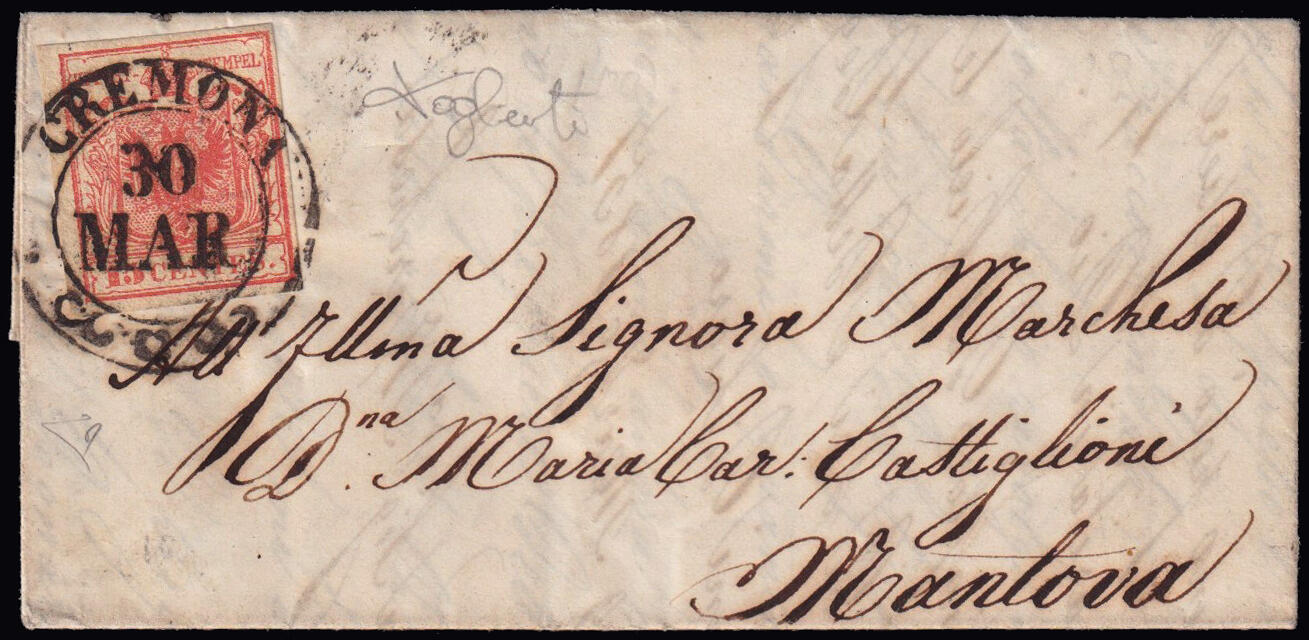 STEMPEL
CREMONA
30
MAR
15 CENTES.
All' Illma Signora Marchesa
Dna. Maria Car: Castiglioni
Mantova